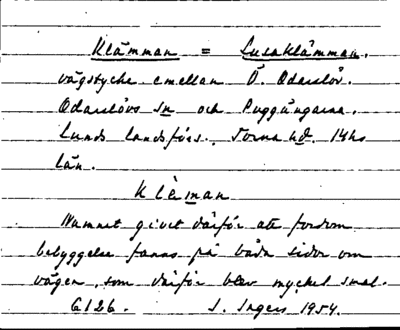 Klämman = Lusaklämman.
vägstycke emellan Ö. Odarslöv.
Odarslövs sn och Puggängarna.
Lunds landsförs. Torna hd. Mhs
län.
Klèman
Namnet givet därför att fordom
bebyggelse fanns på båda sidor om
vägen, som därför blev mycket smal.
6126. I. Ingers 1954.